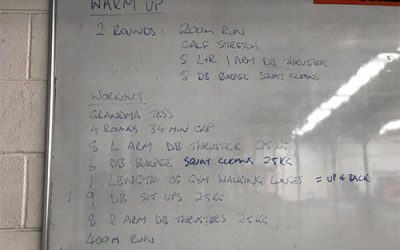 WARM UP
2 ROUNDS: 200M RUN
CALF STRETCH
5 L+R 1 ARM DB THRUSTER
5 DB BURPEE SQUAT CLEANS
WORKOUT
GRANDMA TESS
4 ROUNDS 34 MIN CAP
8 L ARM DB THRUSTER 25KG
6 DB BURPEE SQUAT CLEANS 25KG
1 LENGTH OF GYM WALKING LUNGES = UP & BACK
9 DB SIT UPS 25KG
8 R ARM DB THRUSTERS 25KG
400M RUN